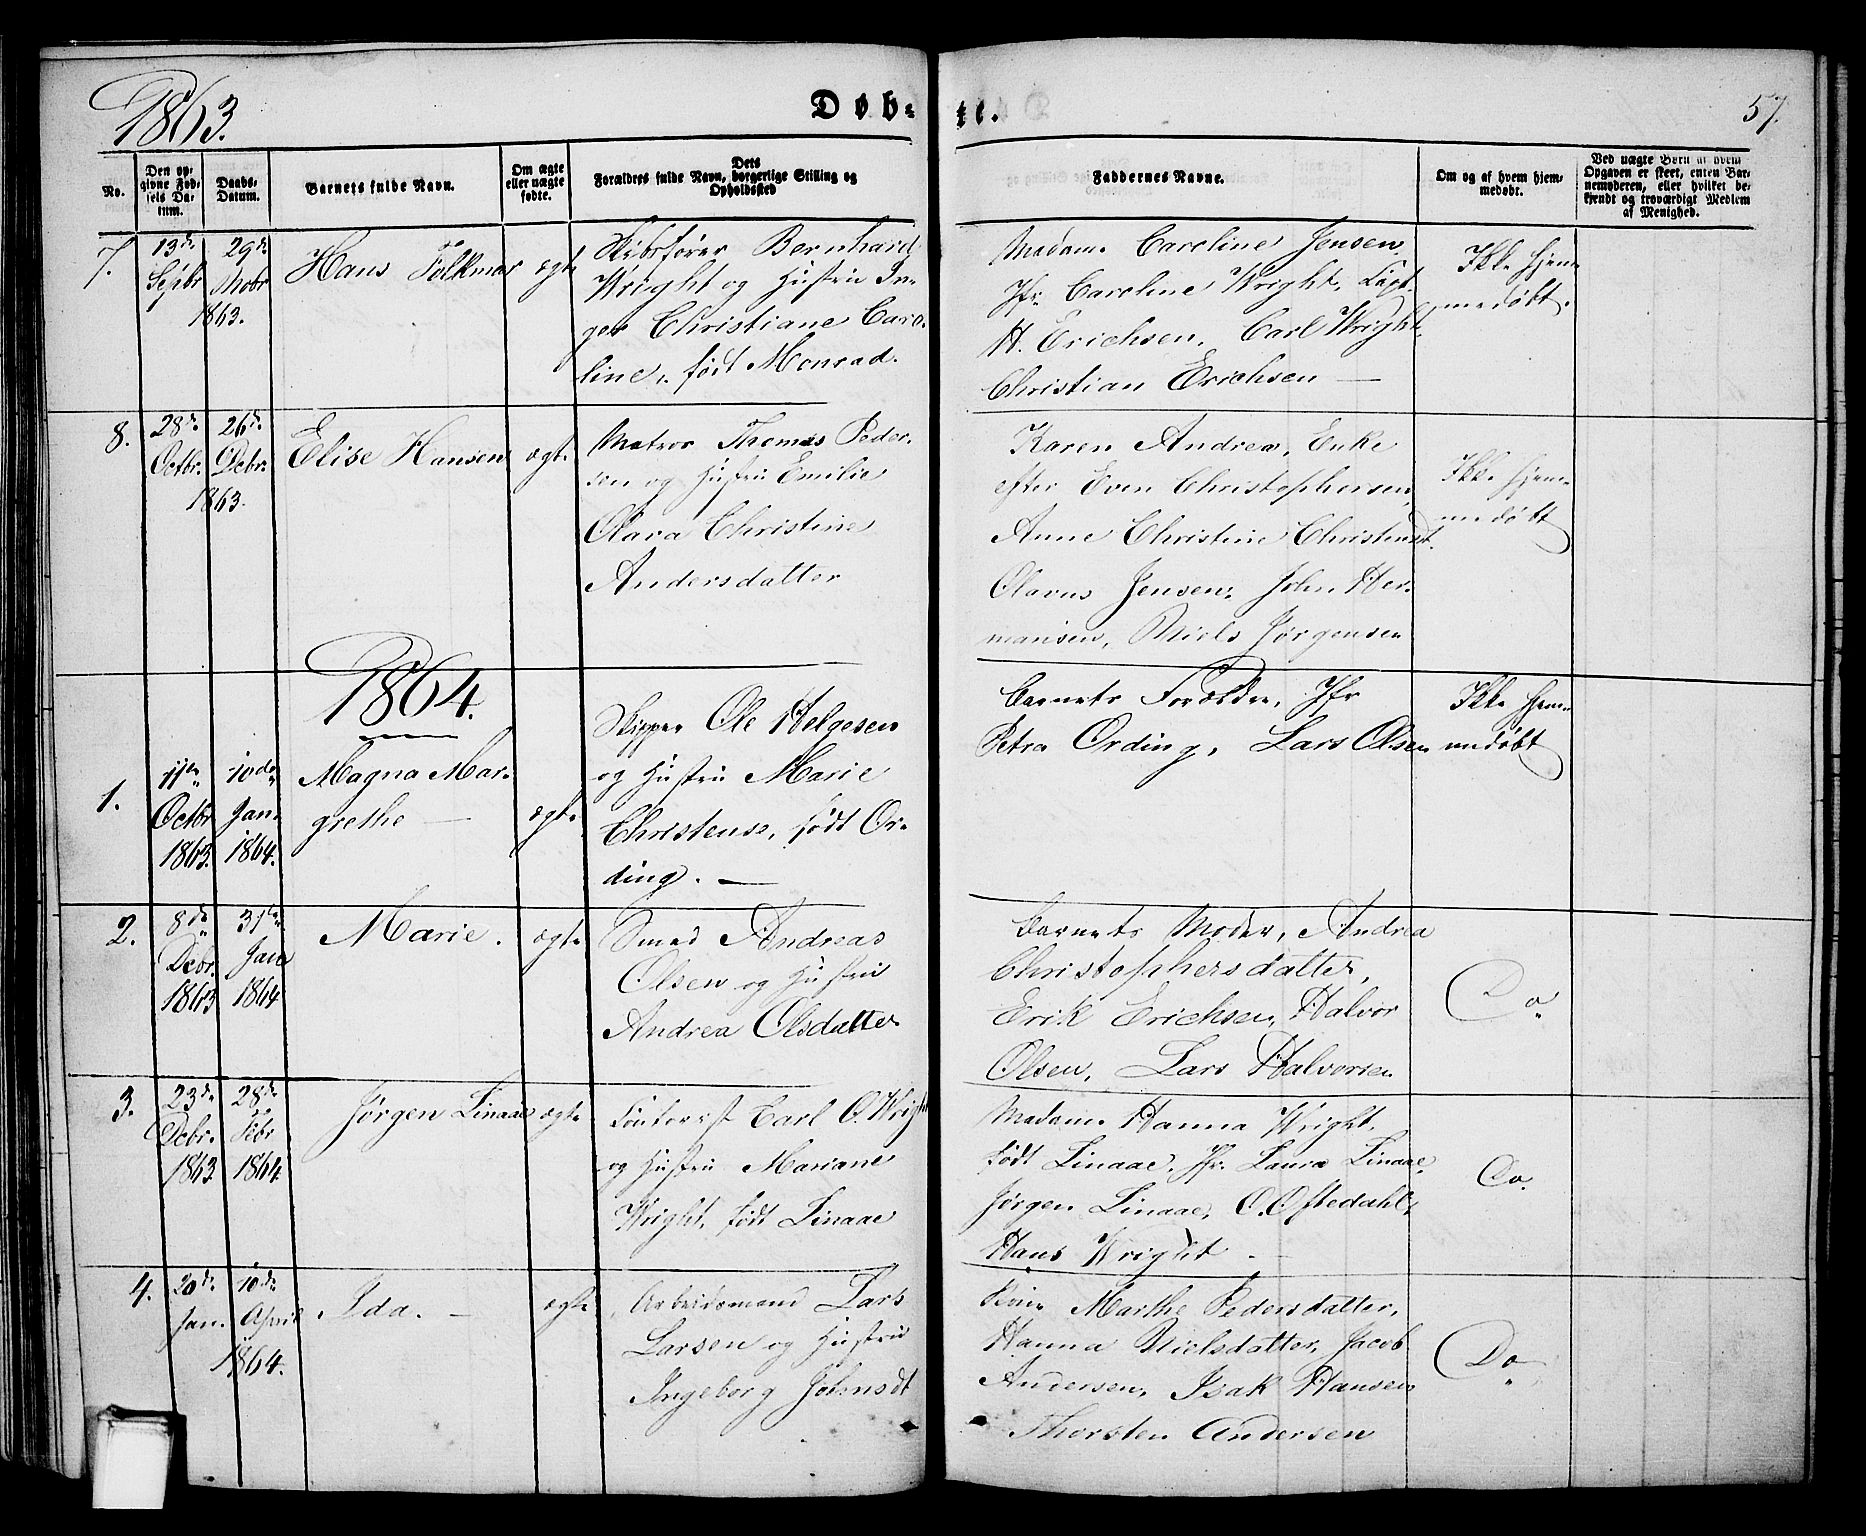 1863.
Døb-
te.
57.
No.
Den op-
givne Fød-
sels Da-
tum.
Daabs-
Datum.
Barnets fulde Navn.
Om ægte
eller uægte
fødte.
Dets
Forældres fulde Navn, borgerlige Stilling og
Opholdssted
Faddernes Navne.
Om og af hvem hjem-
medøbt.
Ved uægte Børn af hvem
Opgaven er skeet, enten Bar-
nemoderen, eller hvilket be-
kjendt og troværdigt Medlem
af Menighed.
7.
13de
Septbr
29de
Novbr
1863.
Hans Folkmar
ægte
Skibsfører Bernhard
Wright og Hustru In-
ger Christiane Caro-
line, født Monrad.
Madam Caroline Jensen,
Jfr. Caroline Wright, Capt.
H. Erichsen, Carl Wright,
Christian Erichsen —
Ikke hjem-
medøbt.
8.
28de
Octbr.
26de
Debr.
1863.
Elise Hansen
ægte
Matros Thomas Peder-
sen og Hustru Emilie
Olava Christine
Andersdatter
Karen Andrea, Enke
efter Even Christophersen,
Anne Christine Christensdt.
Olavus Jensen, John Her-
mansen, Niels Jørgensen
Ikke hjem-
medøbt
1864.
1.
11te
Octbr
1863.
10de
Jan.
1864.
Magna Mar-
grethe —
ægte
Skipper Ole Helgesen
og Hustru Marie
Christense, født Or-
ding. —
Barnets Forældre, Jfr
Petra Ording, Lars Olsen
Ikke hjem-
medøbt
2.
8de
Debr.
1863
31te
Jan
1864
Marie.
ægte
Smed Andreas
Olsen og Hustru
Andrea Olsdatter
Barnets Moder, Andrea
Christophersdatter,
Erik Erichsen, Halvor
Olsen, Lars Halvorsen
Do
3.
23de
Debr.
1863
28de
Febr
1864.
Jørgen Linaae
ægte
Contorist Carl O. Wright
og Hustru Mariane
Wright, født Linaae
Madam Hanna Wright,
født Linaae, Jfr. Laura Linaae,
Jørgen Linaae, O. Oftedahl,
Hans Wright. —
Do.
4.
20de
Jan.
10de
April
1864.
Ida. —
ægte
Arbeidsmand Lars
Larsen og Hustru
Ingeborg Johnsdt
Kone Marthe Pedersdatter,
Hanna Nielsdatter, Jacob
Andersen, Isak Hansen
Thorsten Andersen
Do